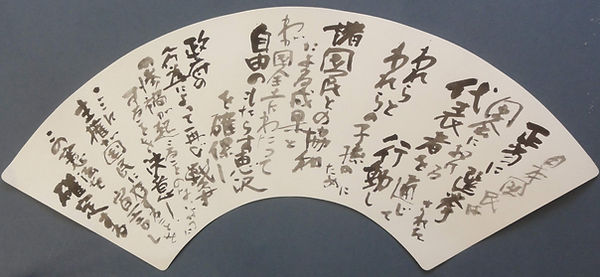 日本国民は
正当に選挙された
国会における
代表者を通じて
行動し
われらと
われらの子孫の
ために
諸国民との協和
による成果と
わが国全土にわたって
自由のもたらす恵沢
を確保し
政府の
行為によって再び戦争
の惨禍が起ることのないやうに
することを決意し
ここに
主権が国民に存することを宣言し
この憲法を確定する